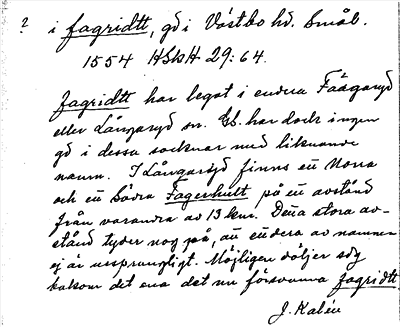 ? i fagridtt, gd i Västbo hd. Smål.
1554 HSkH 29:64.
fagridtt har legat i endera Fäägaryd
eller Långaryd sn. Gb. har dock ingen
gd i dessa socknar med liknande
namn. I Långaryd finns en Norra
och en Södra Fagerhult på en avstånd
från varandra av 13 km. Denna stora av-
stånd tyder nog på, att endera av namnen
ej är ursprungligt. Möjligen döljer sig
bakom det ena det nu försvunna fagridtt
J. Kalén